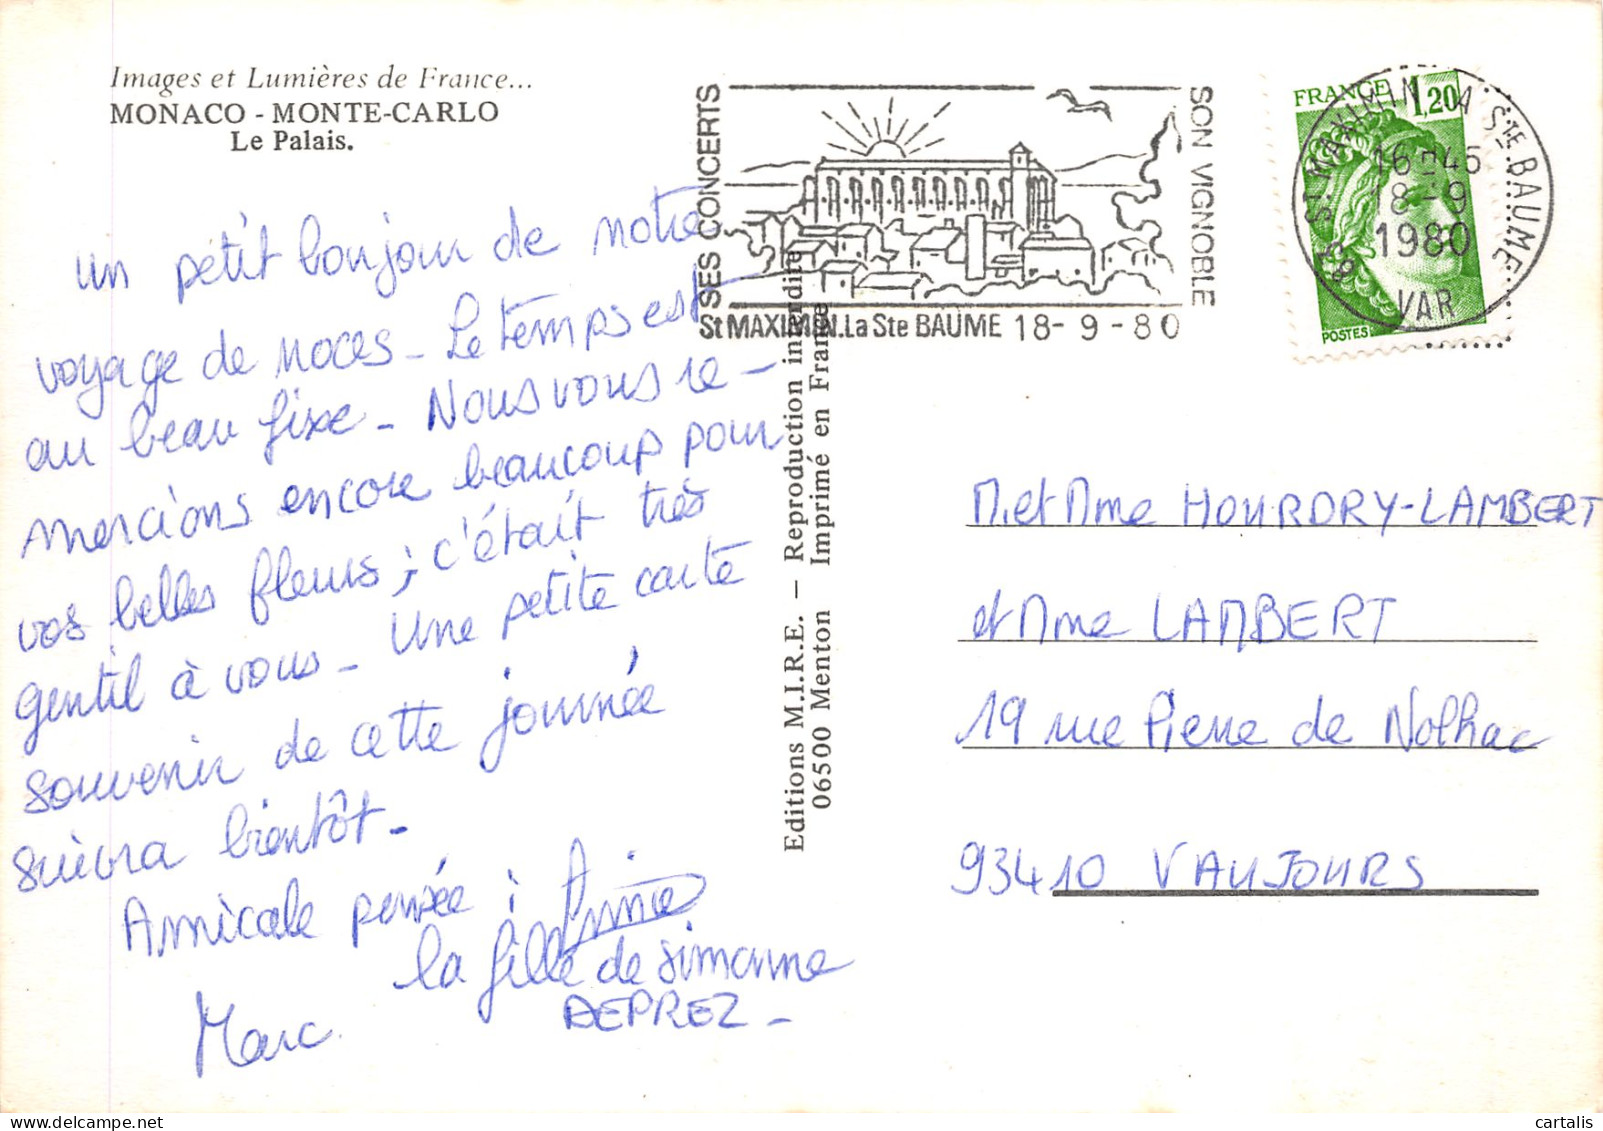 Images et Lumières de France...
MONACO - MONTE-CARLO
Le Palais.
un petit bonjour de notre
voyage de noces - Le temps est
au beau fixe - Nous vous re -
mercions encore beaucoup pour
vos belles fleurs ; c'était très
gentil à vous - Une petite carte
souvenir de cette journée
suivra bientôt -
Amicale pensée :
la fille de Simonne
DEPREZ -
Marc
Editions M.I.R.E. — Reproduction interdite
06500 Menton Imprimé en France
SES CONCERTS
SON VIGNOBLE
St MAXIMIN.La Ste BAUME 18-9-80
FRANCE 1,20
POSTES
83 ST MAXIMIN LA STE BAUME
16 H 45
18-9
1980
VAR
M. et Mme HOURDRY-LAMBERT
et Mme LAMBERT
19 rue Pierre de Nolhac
93410 VAUJOURS
cartalis